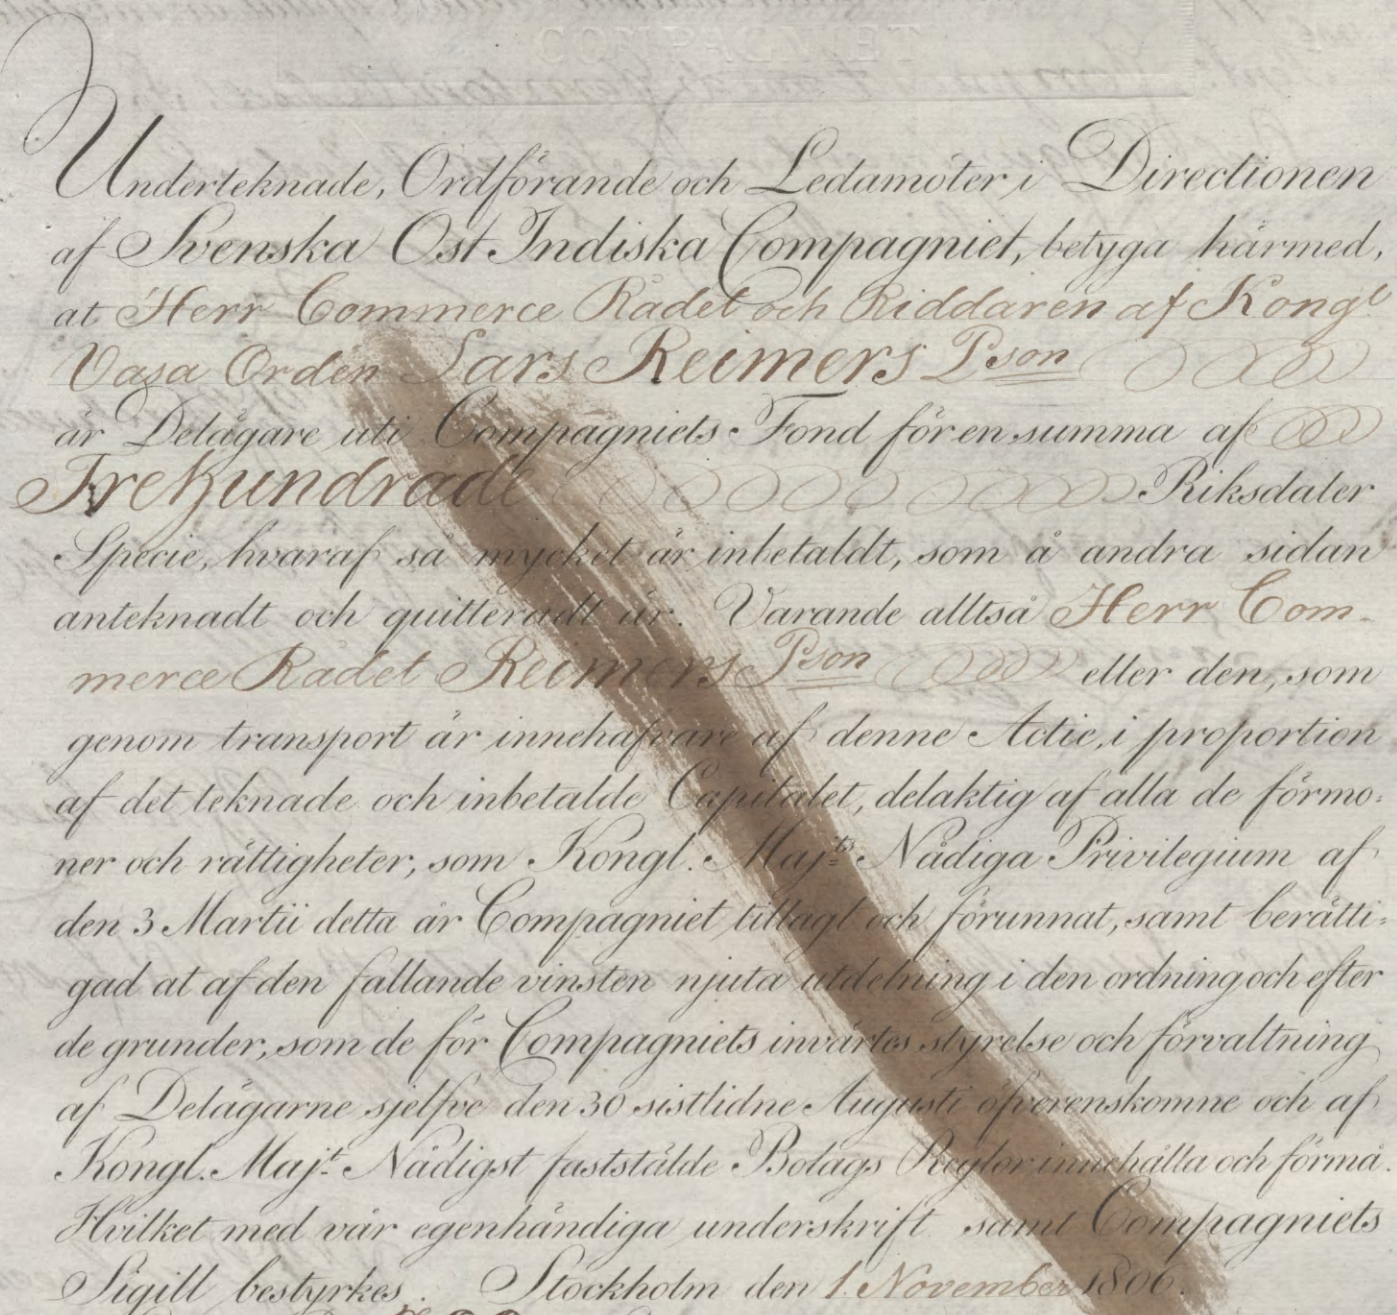 COMPAGNIET
Underteknade, Ordförande och Ledamöter i Directionen
af Svenska Ost Indiska Compagniet, betyga härmed,
at Herr Commerce Rådet och Riddaren af Kongl
Vasa Orden Lars Reimers Pson
är Delägare uti Compagniets Fond för en summa af
Trehundrade Riksdaler
Specie, hvaraf så mycket är inbetaldt, som å andra sidan
anteknadt och quitteradt är. Varande alltså Herr Com-
merce Rådet Reimers Pson eller den, som
genom transport är innehafvare af denne Actie, i proportion
af det teknade och inbetalde Capitalet, delaktig af alla de förmo:
ner och rättigheter, som Kongl. Maj:ts Nådiga Privilegium af
den 3 Martii detta år Compagniet tillagt och förunnat, samt berätti:
gad at af den fallande vinsten njuta utdelning i den ordning och efter
de grunder, som de för Compagniets invärtes styrelse och förvaltning
af Delägarne sjelfve den 30 sistlidne Augusti öfverenskomne och af
Kongl. Maj:t Nådigst faststälde Bolags Reglor innehålla och förmå.
Hvilket med vår egenhändiga underskrift samt Compagniets
Sigill bestyrkes. Stockholm den 1. November 1806.